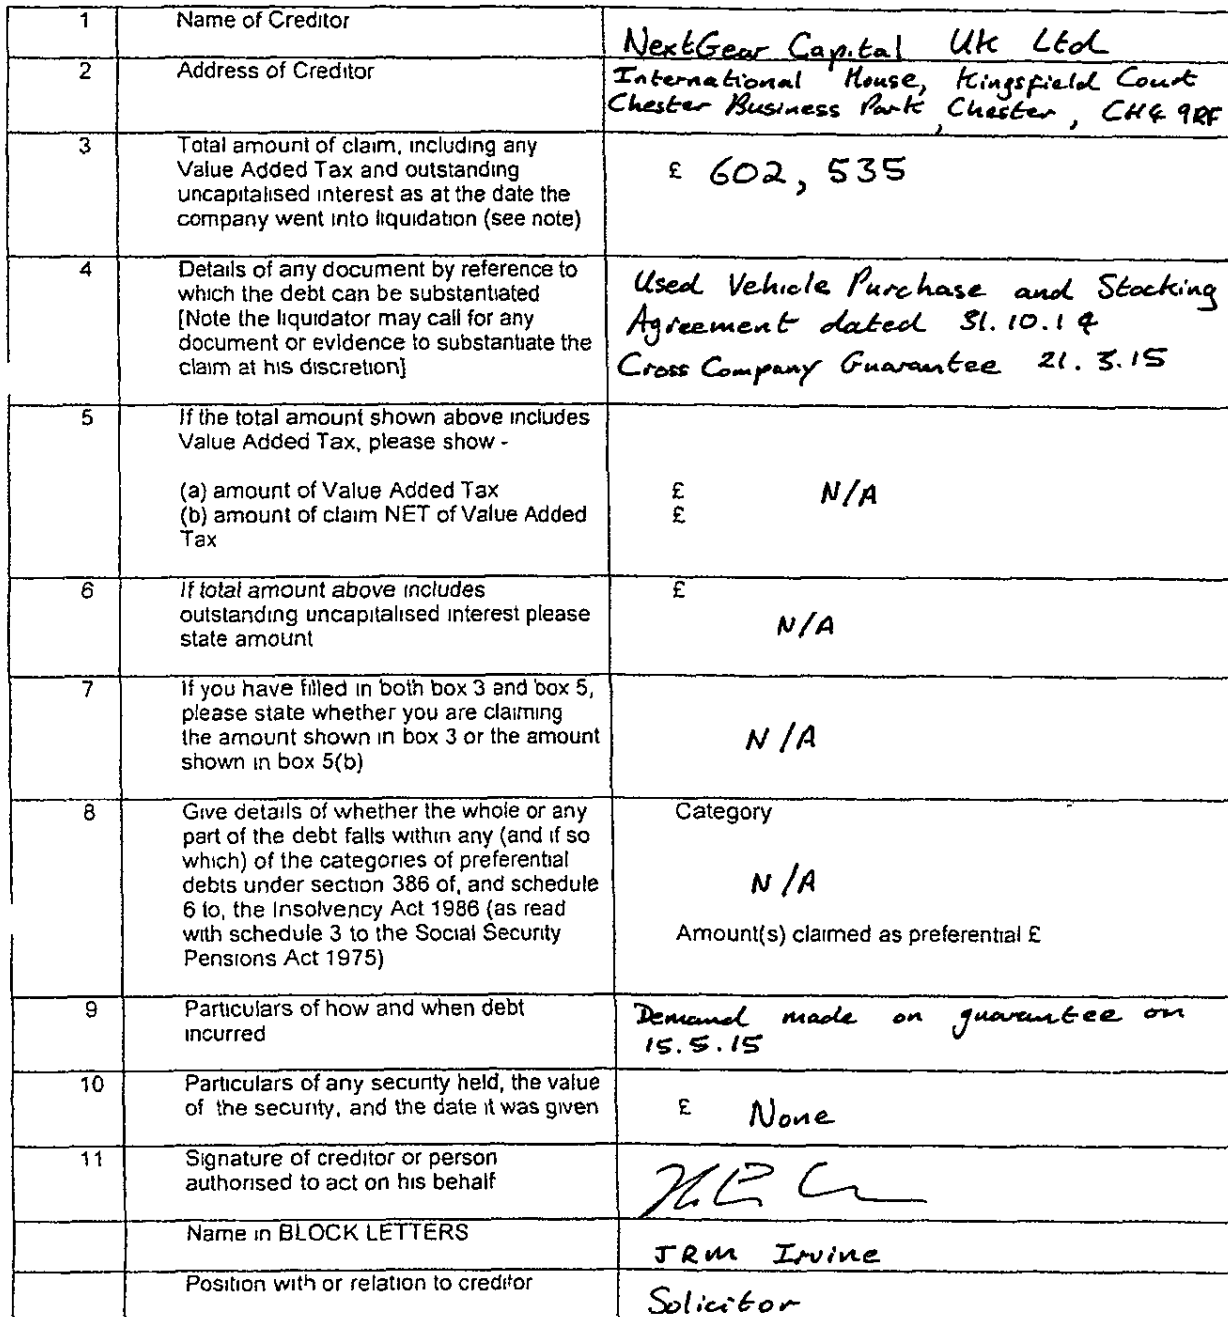 1 Name of Creditor NextGear Capital UK Ltd
2 Address of Creditor International House, Kingsfield Court
Chester Business Park, Chester, CH4 9RF
3 Total amount of claim, including any
Value Added Tax and outstanding
uncapitalised interest as at the date the
company went into liquidation (see note)
£ 602,535
4 Details of any document by reference to
which the debt can be substantiated
[Note the liquidator may call for any
document or evidence to substantiate the
claim at his discretion]
Used Vehicle Purchase and Stocking
Agreement dated 31.10.14
Cross Company Guarantee 21.3.15
5 If the total amount shown above includes
Value Added Tax, please show -
(a) amount of Value Added Tax £ N/A
(b) amount of claim NET of Value Added £
Tax
6 If total amount above includes £
outstanding uncapitalised interest please
state amount
N/A
7 If you have filled in both box 3 and box 5,
please state whether you are claiming
the amount shown in box 3 or the amount
shown in box 5(b)
N/A
8 Give details of whether the whole or any
part of the debt falls within any (and if so
which) of the categories of preferential
debts under section 386 of, and schedule
6 to, the Insolvency Act 1986 (as read
with schedule 3 to the Social Security
Pensions Act 1975)
Category
N/A
Amount(s) claimed as preferential £
9 Particulars of how and when debt
incurred
Demand made on guarantee on
15.5.15
10 Particulars of any security held, the value
of the security, and the date it was given
£ None
11 Signature of creditor or person
authorised to act on his behalf
Name in BLOCK LETTERS JRM Irvine
Position with or relation to creditor Solicitor